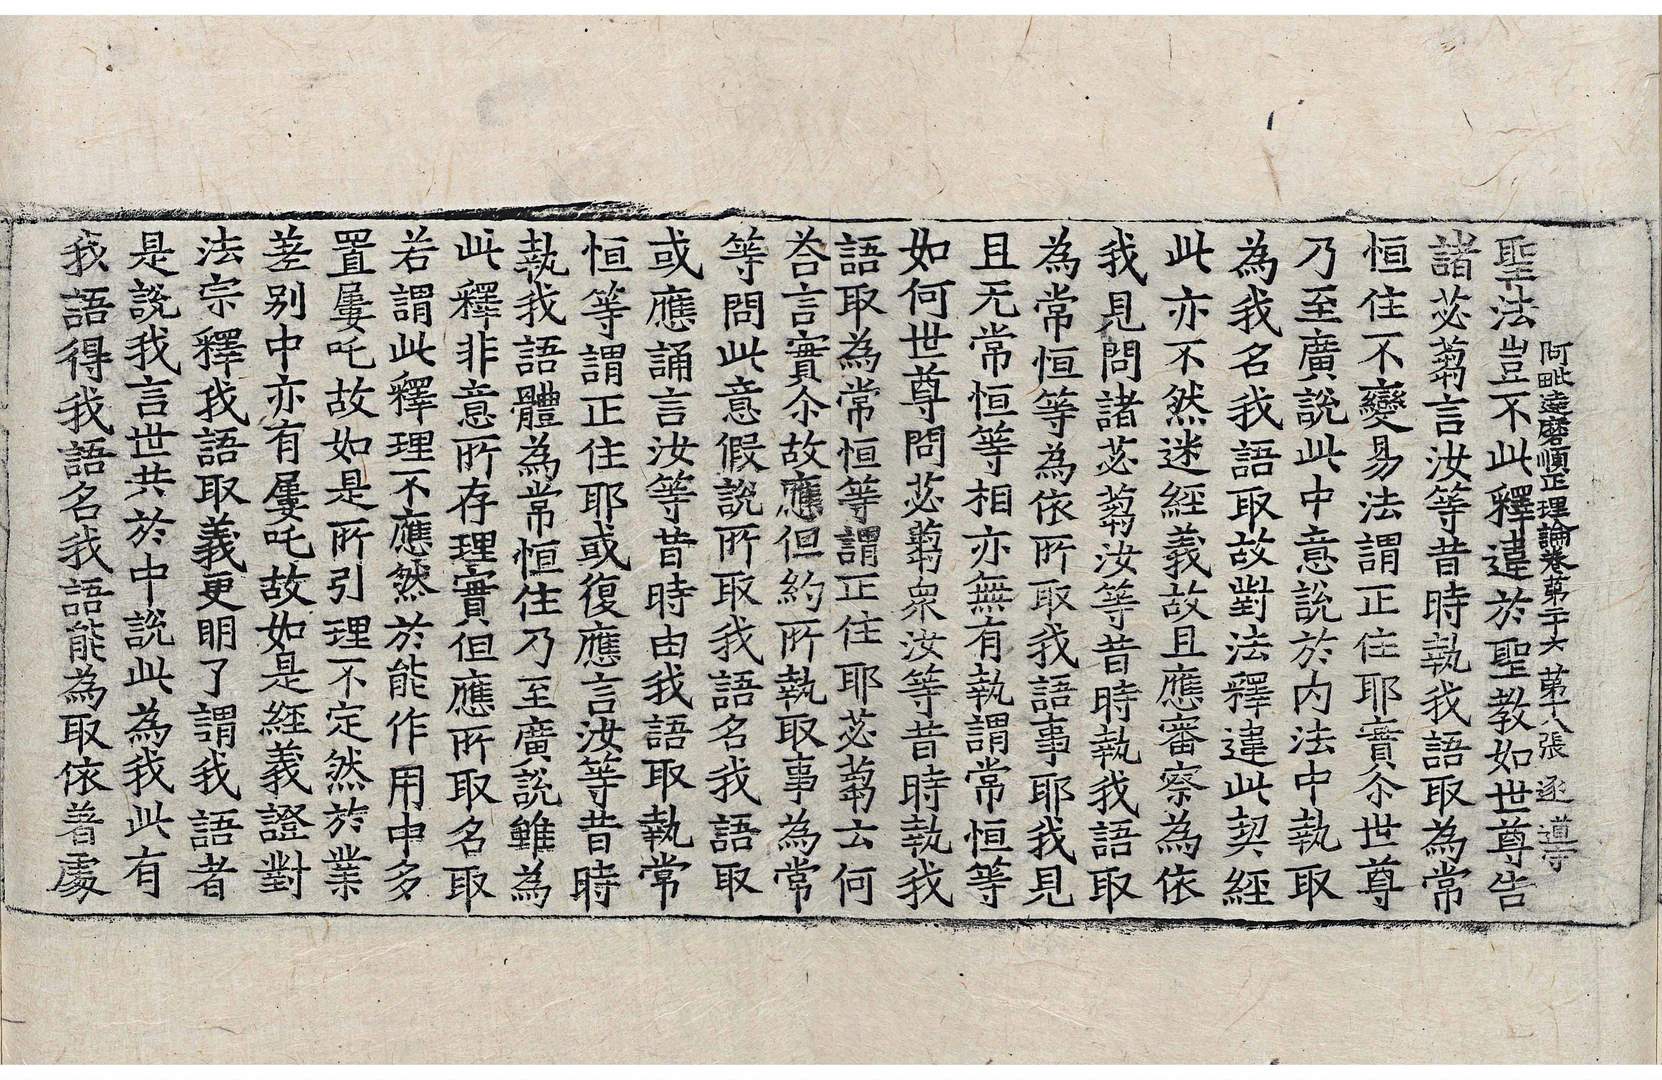 阿毗達磨順正理論卷第二十六 第十八張 逐 遵守
聖法豈不此釋違於聖教如世尊告
諸苾蒭言汝等昔時執我語取為常
恒住不變易法謂正住耶實尒世尊
乃至廣說此中意說於內法中執取
為我名我語取故對法釋違此契經
此亦不然迷經義故且應審察為依
我見問諸苾蒭汝等昔時執我語取
為常恒等為依所取我語事耶我見
且无常恒等相亦無有執謂常恒等
如何世尊問苾蒭衆汝等昔時執我
語取為常恒等謂正住耶苾蒭云何
荅言實尒故應但約所執取事為常
等問此意假說所取我語名我語取
或應誦言汝等昔時由我語取執常
恒等謂正住耶或復應言汝等昔時
執我語體為常恒住乃至廣說雖為
此釋非意所存理實但應所取名取
若謂此釋理不應然於能作用中多
置屢吒故如是所引理不定然於業
差别中亦有屢吒故如是經義證對
法宗釋我語取義更明了謂我語者
是說我言世共於中說此為我此有
我語得我語名我語能為取依著處